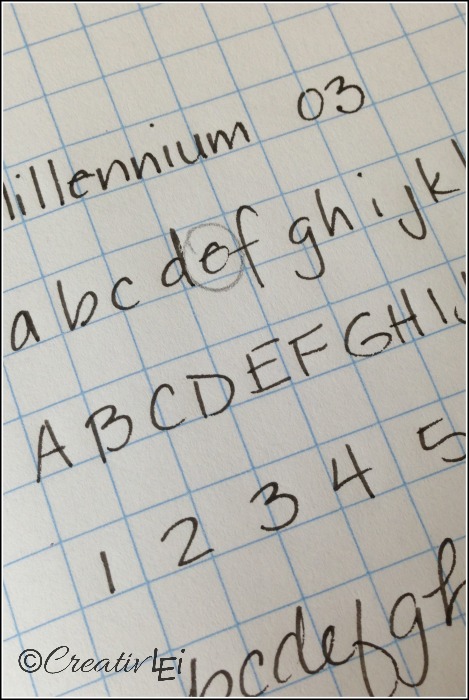 illennium 03
a b c d e f g h i j k
A B C D E F G H I
1 2 3 4 5
bcdefgh
©CreativLEi